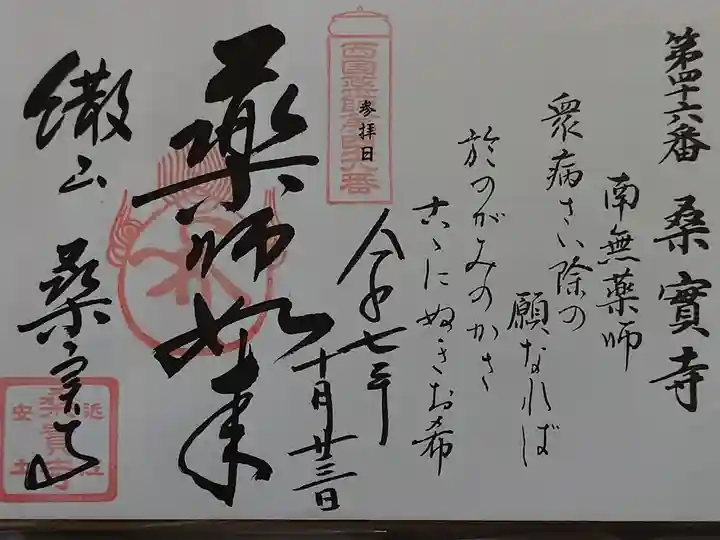 第四十六番 桑實寺
南無薬師
衆病さい除の
願なれば
於のがみのかさ
古ゝにぬきお希
西国薬師第四十六番
参拝日
令和七年
十月廿三日
薬師如来
繖山 桑實寺
近江
桑實寺
安土